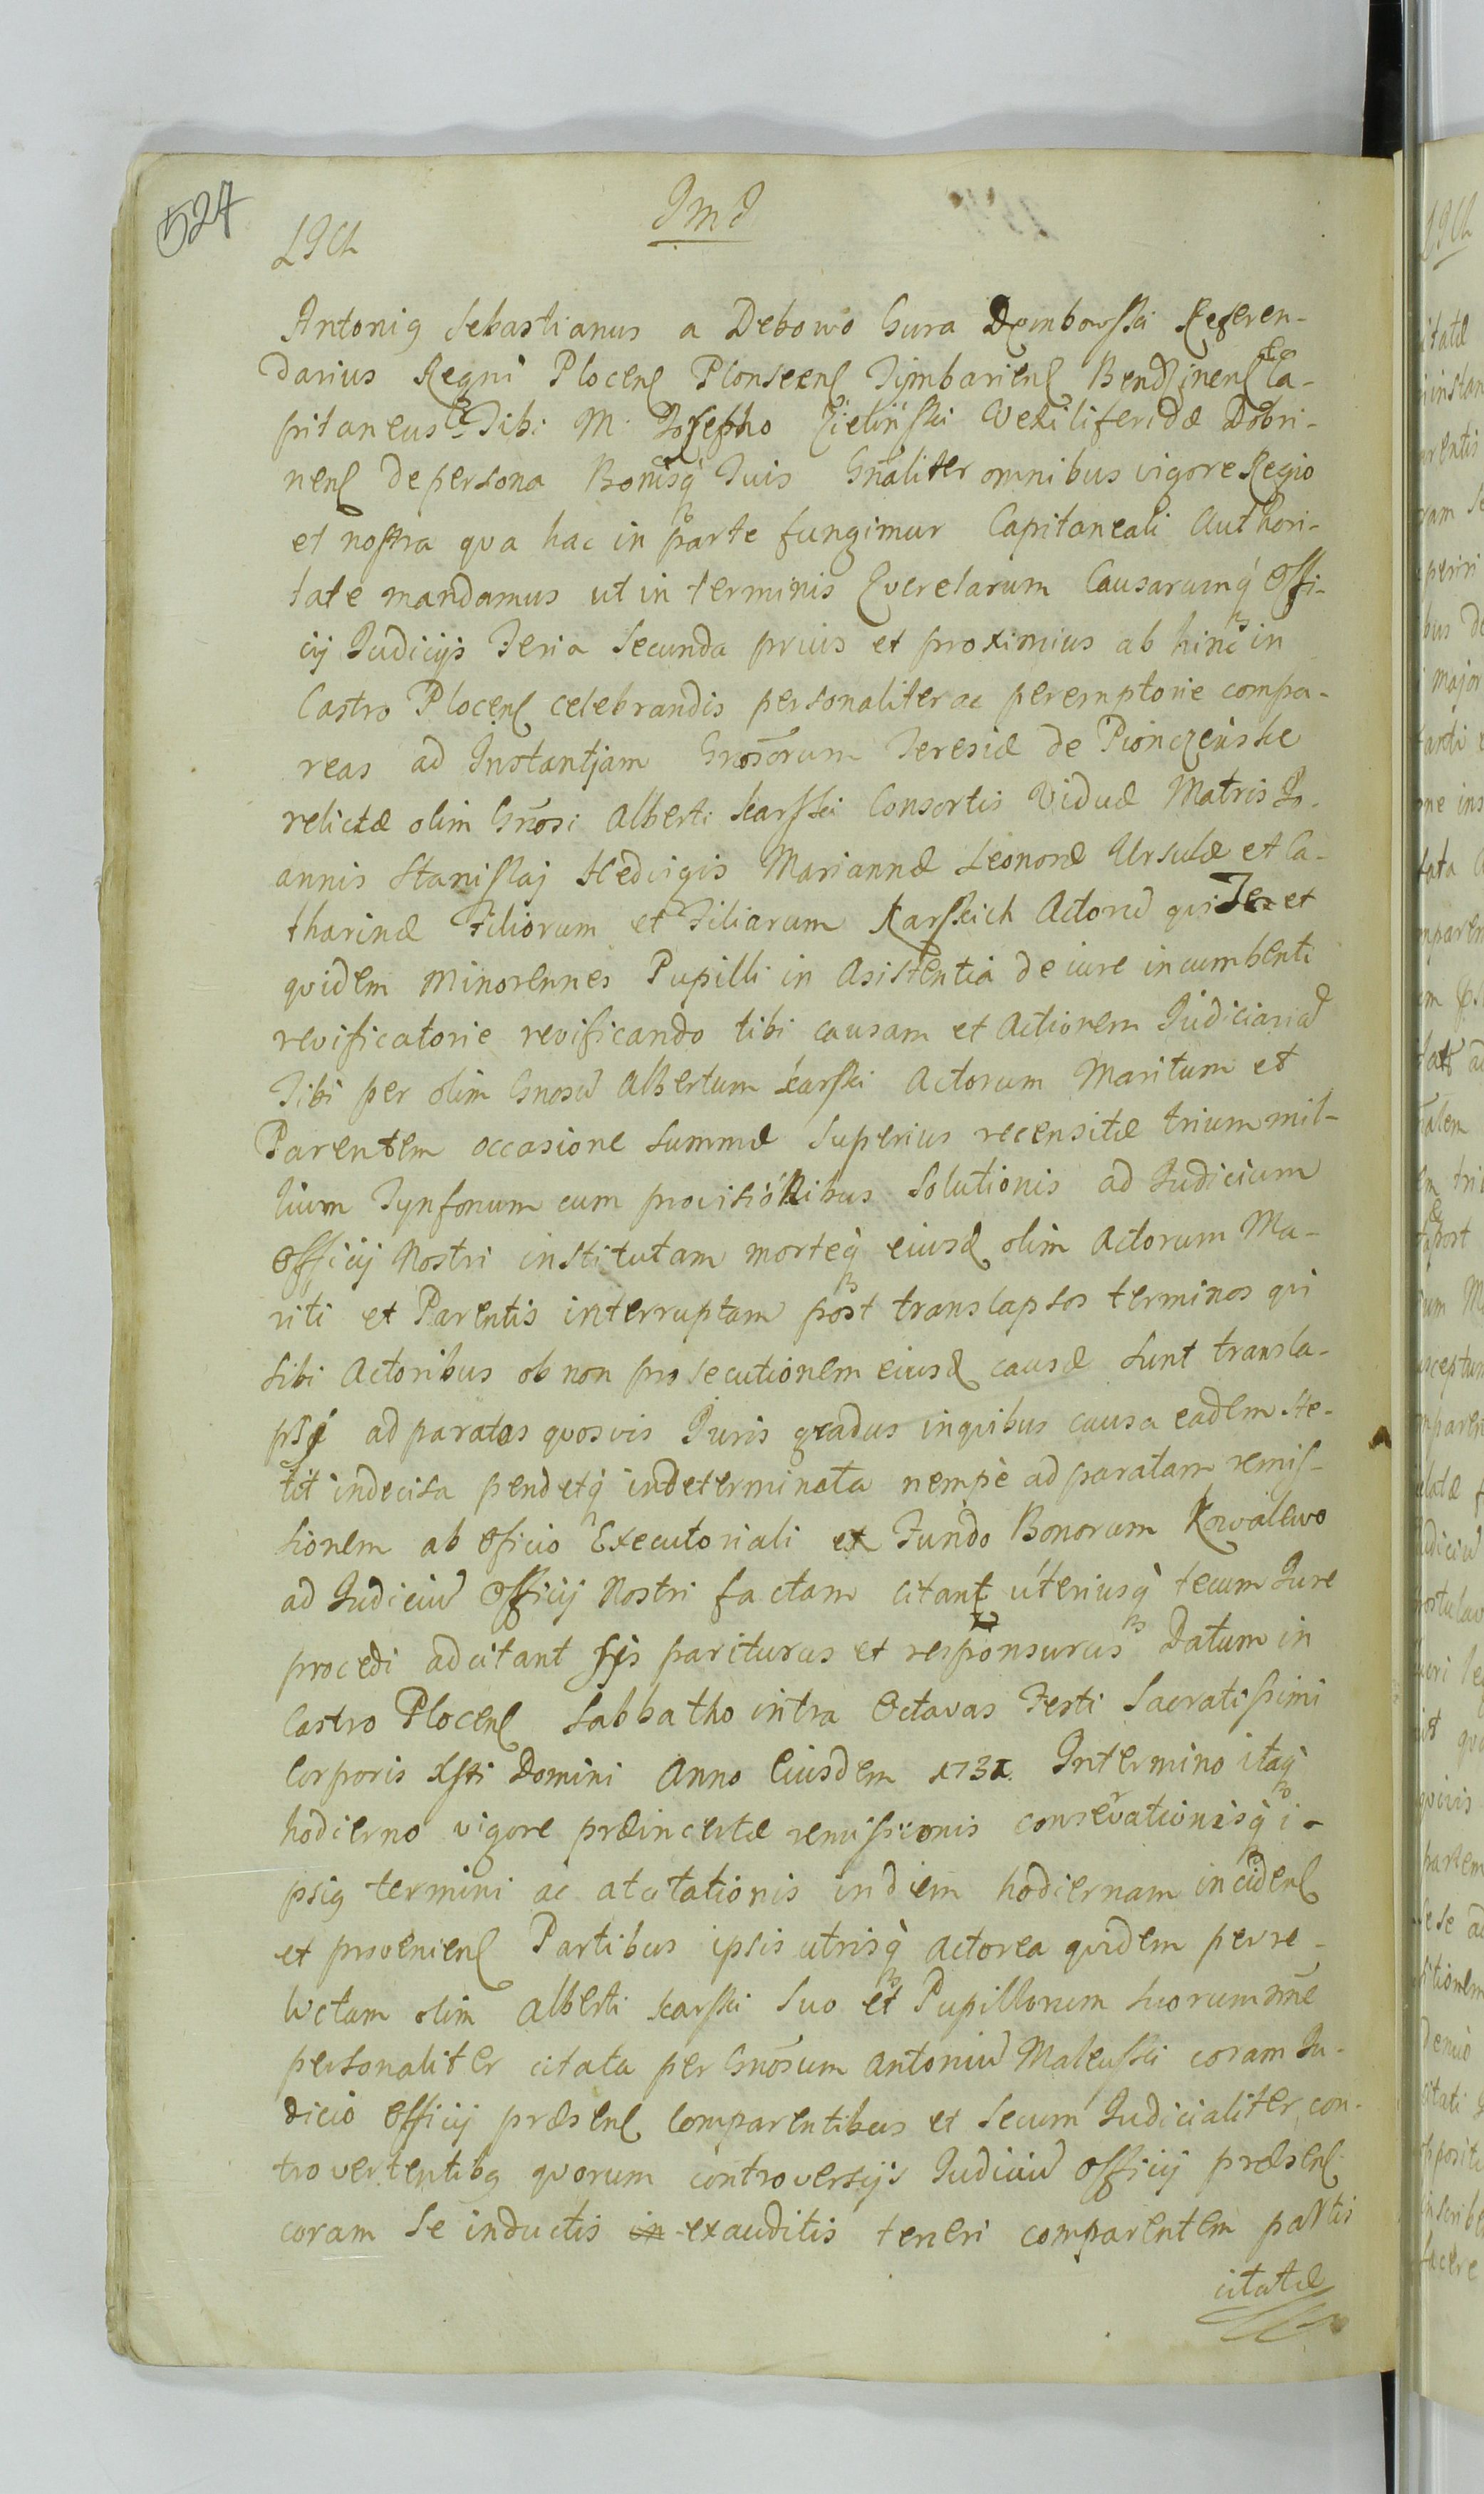 524
JMJ
Antonig Sebastianus a Debowo Gura Dembowski Referen-
darius Regni Plocens Plonscens Tymbariens Bendzinens Ca-
pitaneus Tibi M. Josepho Zieliński Vexiliferidæ Dobri-
nens de persona Bonisq Tuis Gnāliter omnibus vigore Regio
et nostra qua hac in parte fungimur Capitaneali Authori-
tate mandamus ut in terminis Querelarum Causarumq Offi-
cij Judicijs Feria Secunda prius et proximius ab hinc in
Castro Plocens celebrandis personaliter ac peremptorie compa-
reas ad Instantjam Gnosorum Teresiæ de Pionczeńskie
relictæ olim Gnōsi Alberti Karski Consortis Viduæ Matris Jo-
annis Stanislaj Hedvigis Mariannæ Leonoræ Ursulæ et Ca-
tharinæ Filiorum et Filiarum Karskich Actorū qui et
quidem Minorennes Pupilli in Asistentia de iure incumbenti
revificatorie revificando tibi causam et Actionem Judiciariā
Tibi per olim Gnosū Albertum Karski Actorum Maritum et
Parentem occasione Summæ Superius recensitæ trium mil-
lium Tynfonum cum provisionibus Solutionis ad Judicium
Officij Nostri institutam morteq eiusd olim Actorum Ma-
riti et Parentis interruptam post translapsos terminos qui
Sibi Actoribus ob non prosecutionem eiusd causæ Sunt transla-
psi ad paratos quosvis Juris gradus in quibus causa eadem Ste-
tit indecisa pendetq indeterminata nempè ad paratam remis-
sionem ab Oficio Executoriali ex Fundo Bonorum Kowalewo
ad Judiciū Officij Nostri factam citant ulteriusq tecum Jure
procedi adcitant sis pariturus et responsurus Datum in
Castro Plocens Sabbatho intra Octavas Festi Sacratissimi
Corporis Xsti Domini Anno Eiusdem Intermino itaq
hodierno vigore præincertæ remissionis conservationisq i-
psig termini ac atcitationis in diem hodiernam incidens
et proveniens Partibus ipsis utrisq Actorea quidem per re-
lictam olim Alberti Karski Suo et Pupillorum Suorum nñe
personaliter citata per Gnōsum Antoniū Maleuski coram Ju-
dicio Officij præsens Comparentibus et Secum Judicialiter con-
trovertentibg quorum controversijs Judiciū Officij præsens
coram Se inductis in exauditis teneri comparentem partis
citatæ